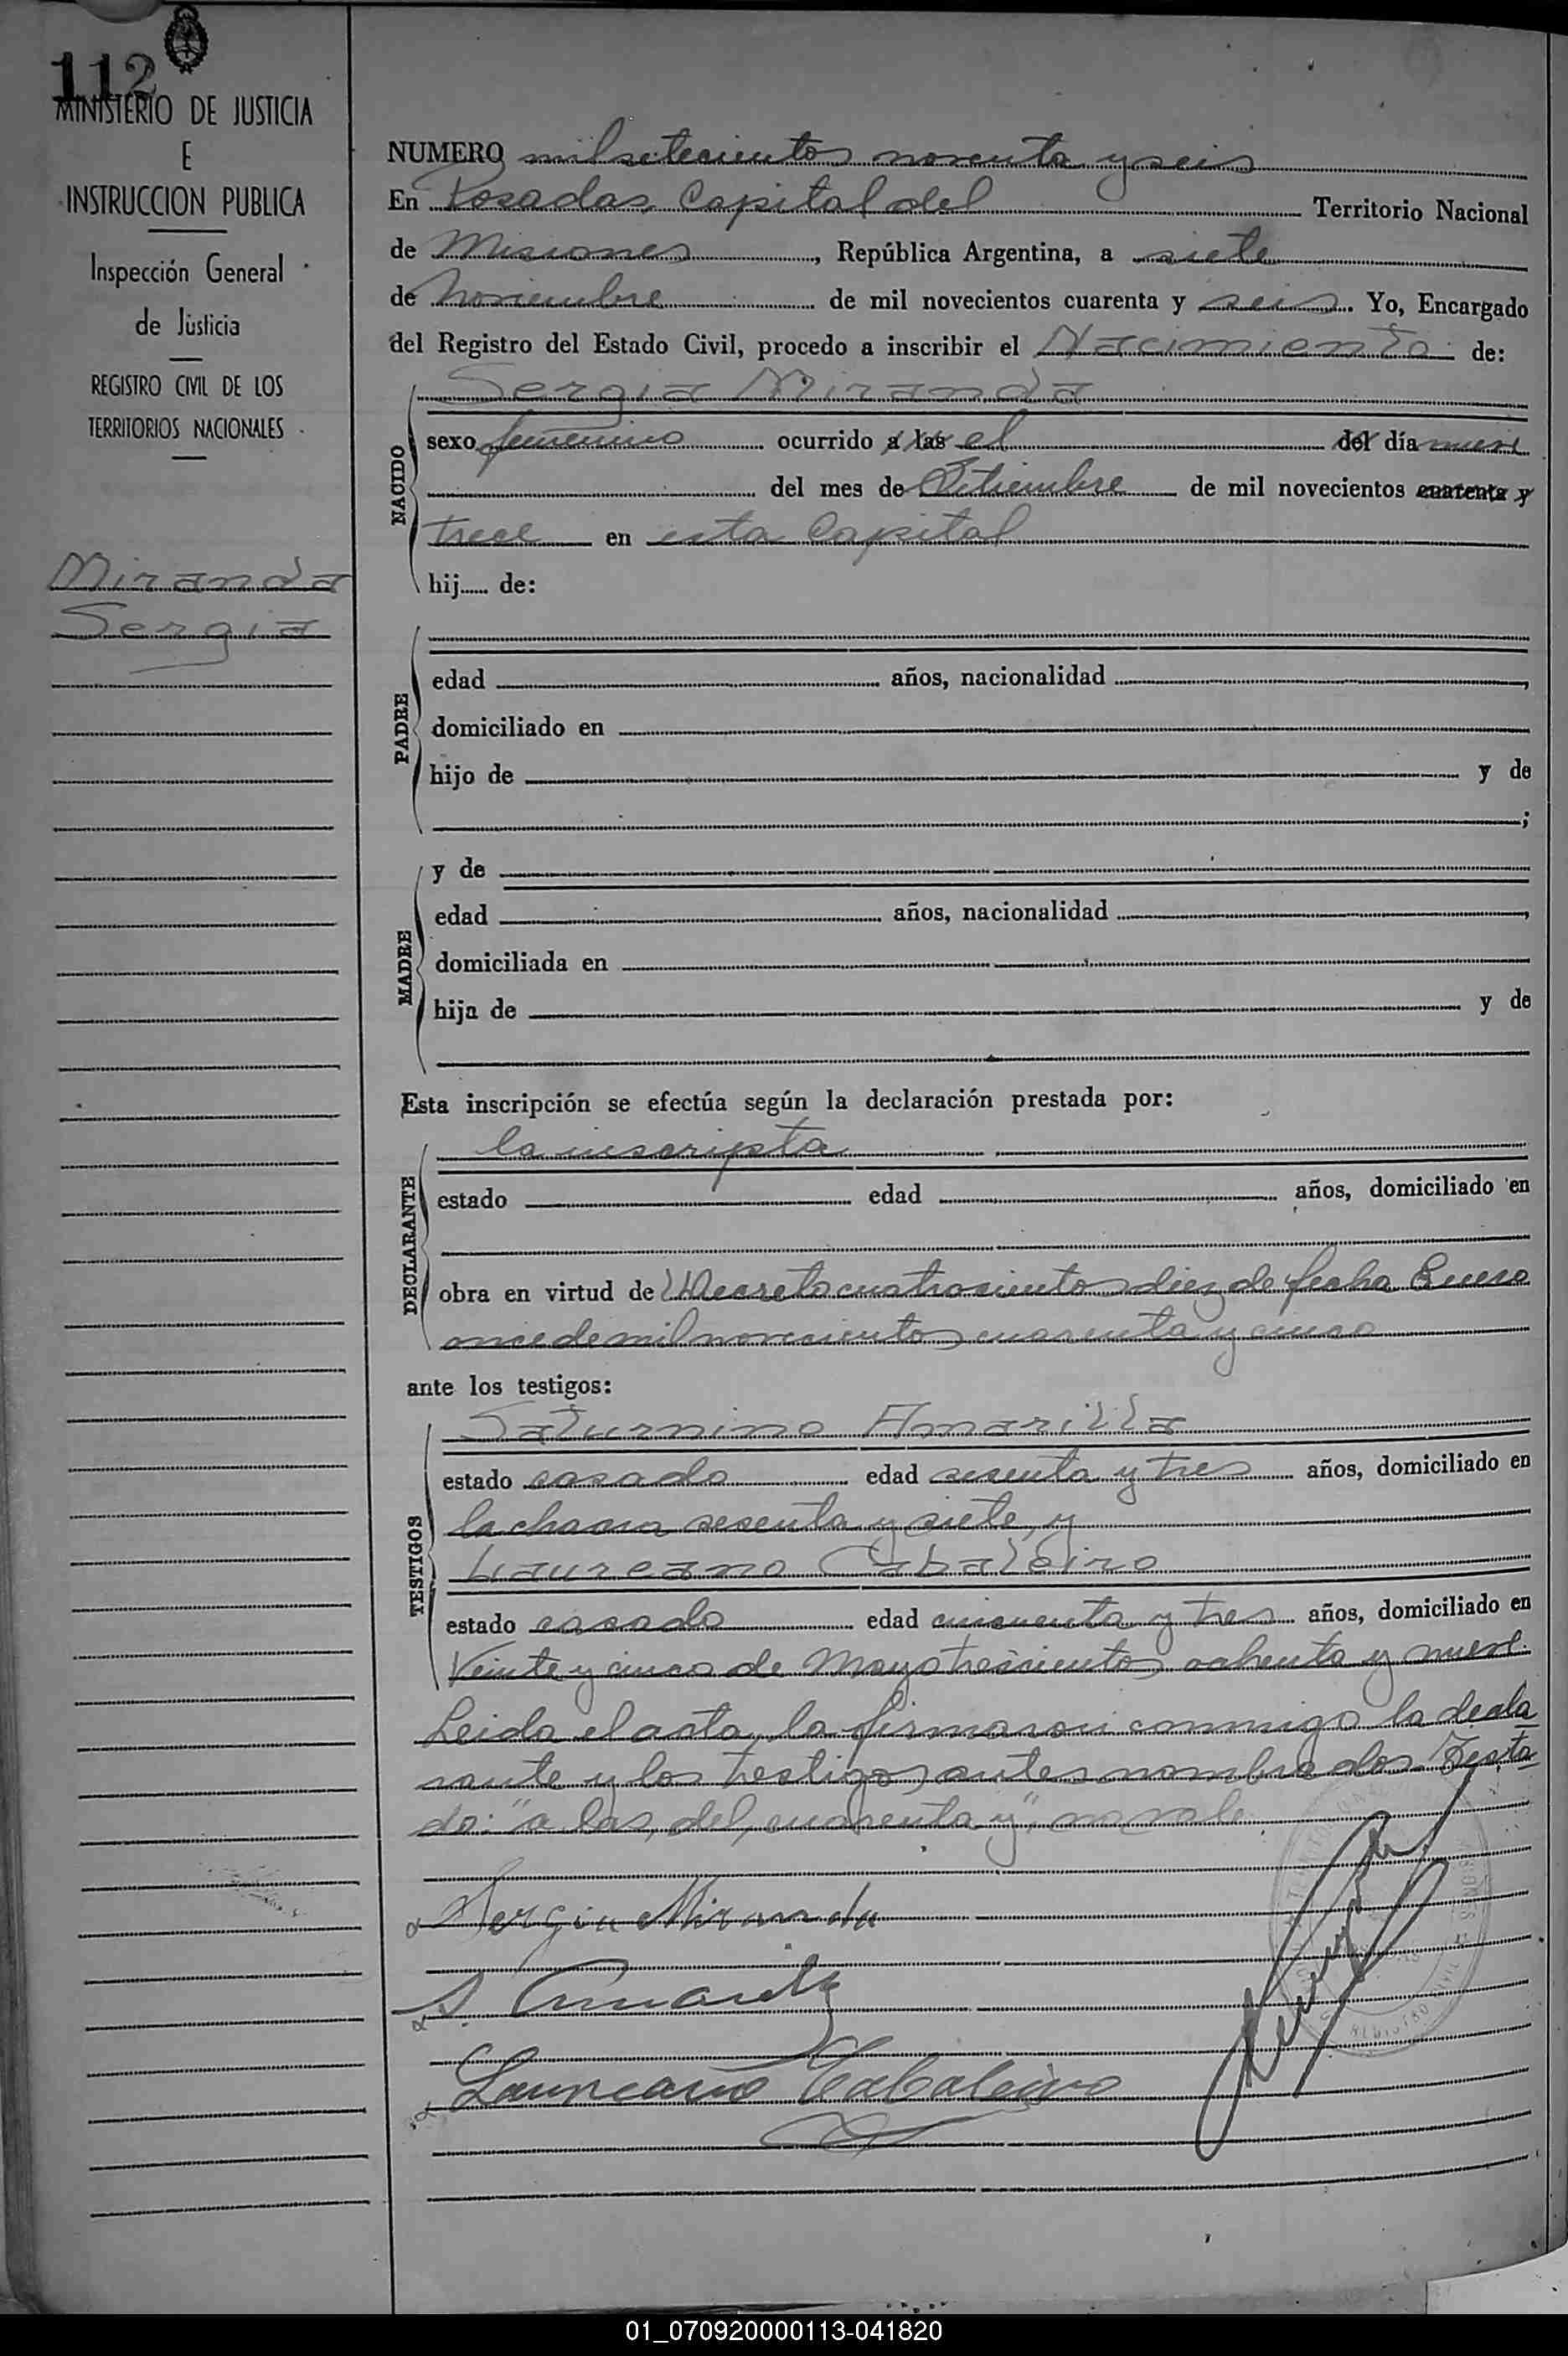 112
MINISTERIO DE JUSTICIA
E
INSTRUCCION PUBLICA
Inspección General
de Justicia
REGISTRO CIVIL DE LOS
TERRITORIOS NACIONALES
Miranda
Sergia
NUMERO mil setecientos noventa y seis
En Posadas Capital del Territorio Nacional
de Misiones, República Argentina, a siete
de Noviembre de mil novecientos cuarenta y seis. Yo, Encargado
del Registro del Estado Civil, procedo a inscribir el Nacimiento de:
NACIDO
Sergia Miranda
sexo femenino ocurrido a las el del día nueve
del mes de Setiembre de mil novecientos cuarenta y
trece en esta Capital
hij...... de:
PADRE
edad años, nacionalidad ,
domiciliado en
hijo de y de
;
MADRE
y de
edad años, nacionalidad ,
domiciliada en
hija de y de
Esta inscripción se efectúa según la declaración prestada por:
DECLARANTE
la inscripta
estado edad años, domiciliado en
obra en virtud de Decreto cuatrocientos diez de fecha Enero
once de mil novecientos cuarenta y cinco
ante los testigos:
TESTIGOS
Saturnino Amarilla
estado casado edad sesenta y tres años, domiciliado en
la chacra sesenta y siete, y
Laureano Cabaleiro
estado casado edad cincuenta y tres años, domiciliado en
Veinte y cinco de Mayo trescientos ochenta y nueve.
Leida el acta, la firmaron conmigo la decla
rante y los testigos antes nombrados. Testa
do: "a las, del, cuarenta y", no vale
Sergia Miranda
S. Amarilla
Laureano Cabaleiro
REGISTRO CIVIL
01_070920000113-041820